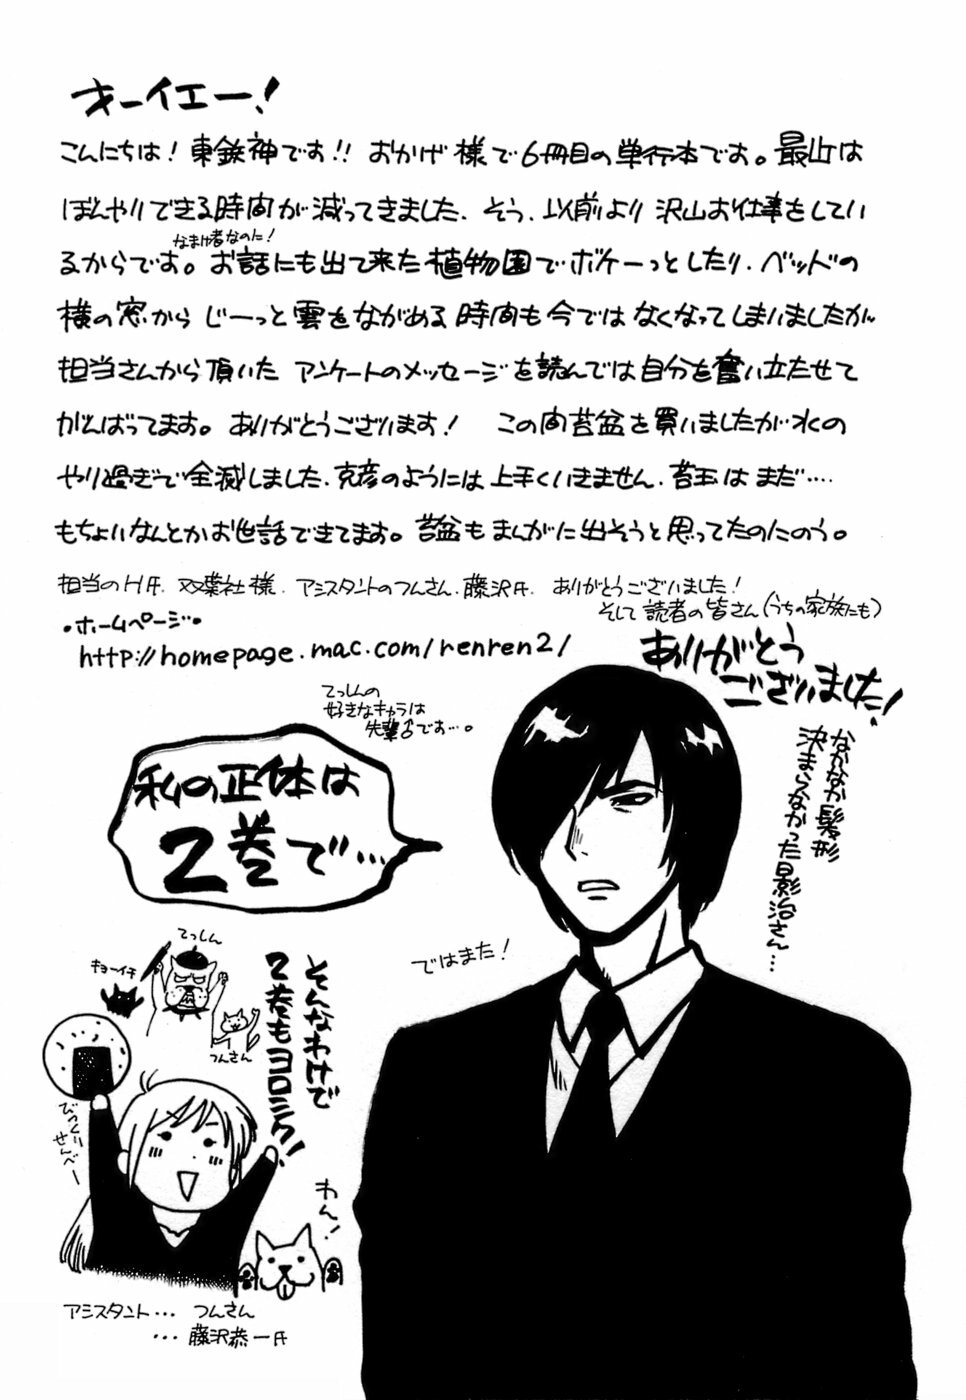 オーイエー!
こんにちは!東鉄神です!!おかげ様で6冊目の単行本です。最近は
ぼんやりできる時間が減ってきました、そう、以前より沢山お仕事をしてい
るからです。お話にも出て来た植物園でボケーっとしたり、ベッドの
なまけ者なのに!
横の窓からじーっと雲をながめる時間も今ではなくなってしまいましたが、
担当さんから頂いたアンケートのメッセージを読んでは自分を奮い立たせて
がんばってます。ありがとうございます! この間苔盆を買いましたが水の
やり過ぎで全滅しました、克彦のようには上手くいきません、苔玉はまだ……
もちょいなんとかお世話できてます。苔盆もまんがに出そうと思ってたのにのう。
担当のH氏、双葉社様、アシスタントのつんさん、藤沢氏、ありがとうございました!
そして読者の皆さん(うちの家族にも)
ありがとう
ございました!
・ホームページ・
http://homepage.mac.com/renren2/
てっしんの
好きなキャラは
先輩♂です…。
私の正体は
2巻で…
なかなか髪形
決まらなかった影治さん…
ではまた!
そんなわけで
2巻もヨロシク!
てっしん
キョーイチ
つんさん
びっくり
せんべー
わん!
アシスタント… つんさん
… 藤沢恭一氏